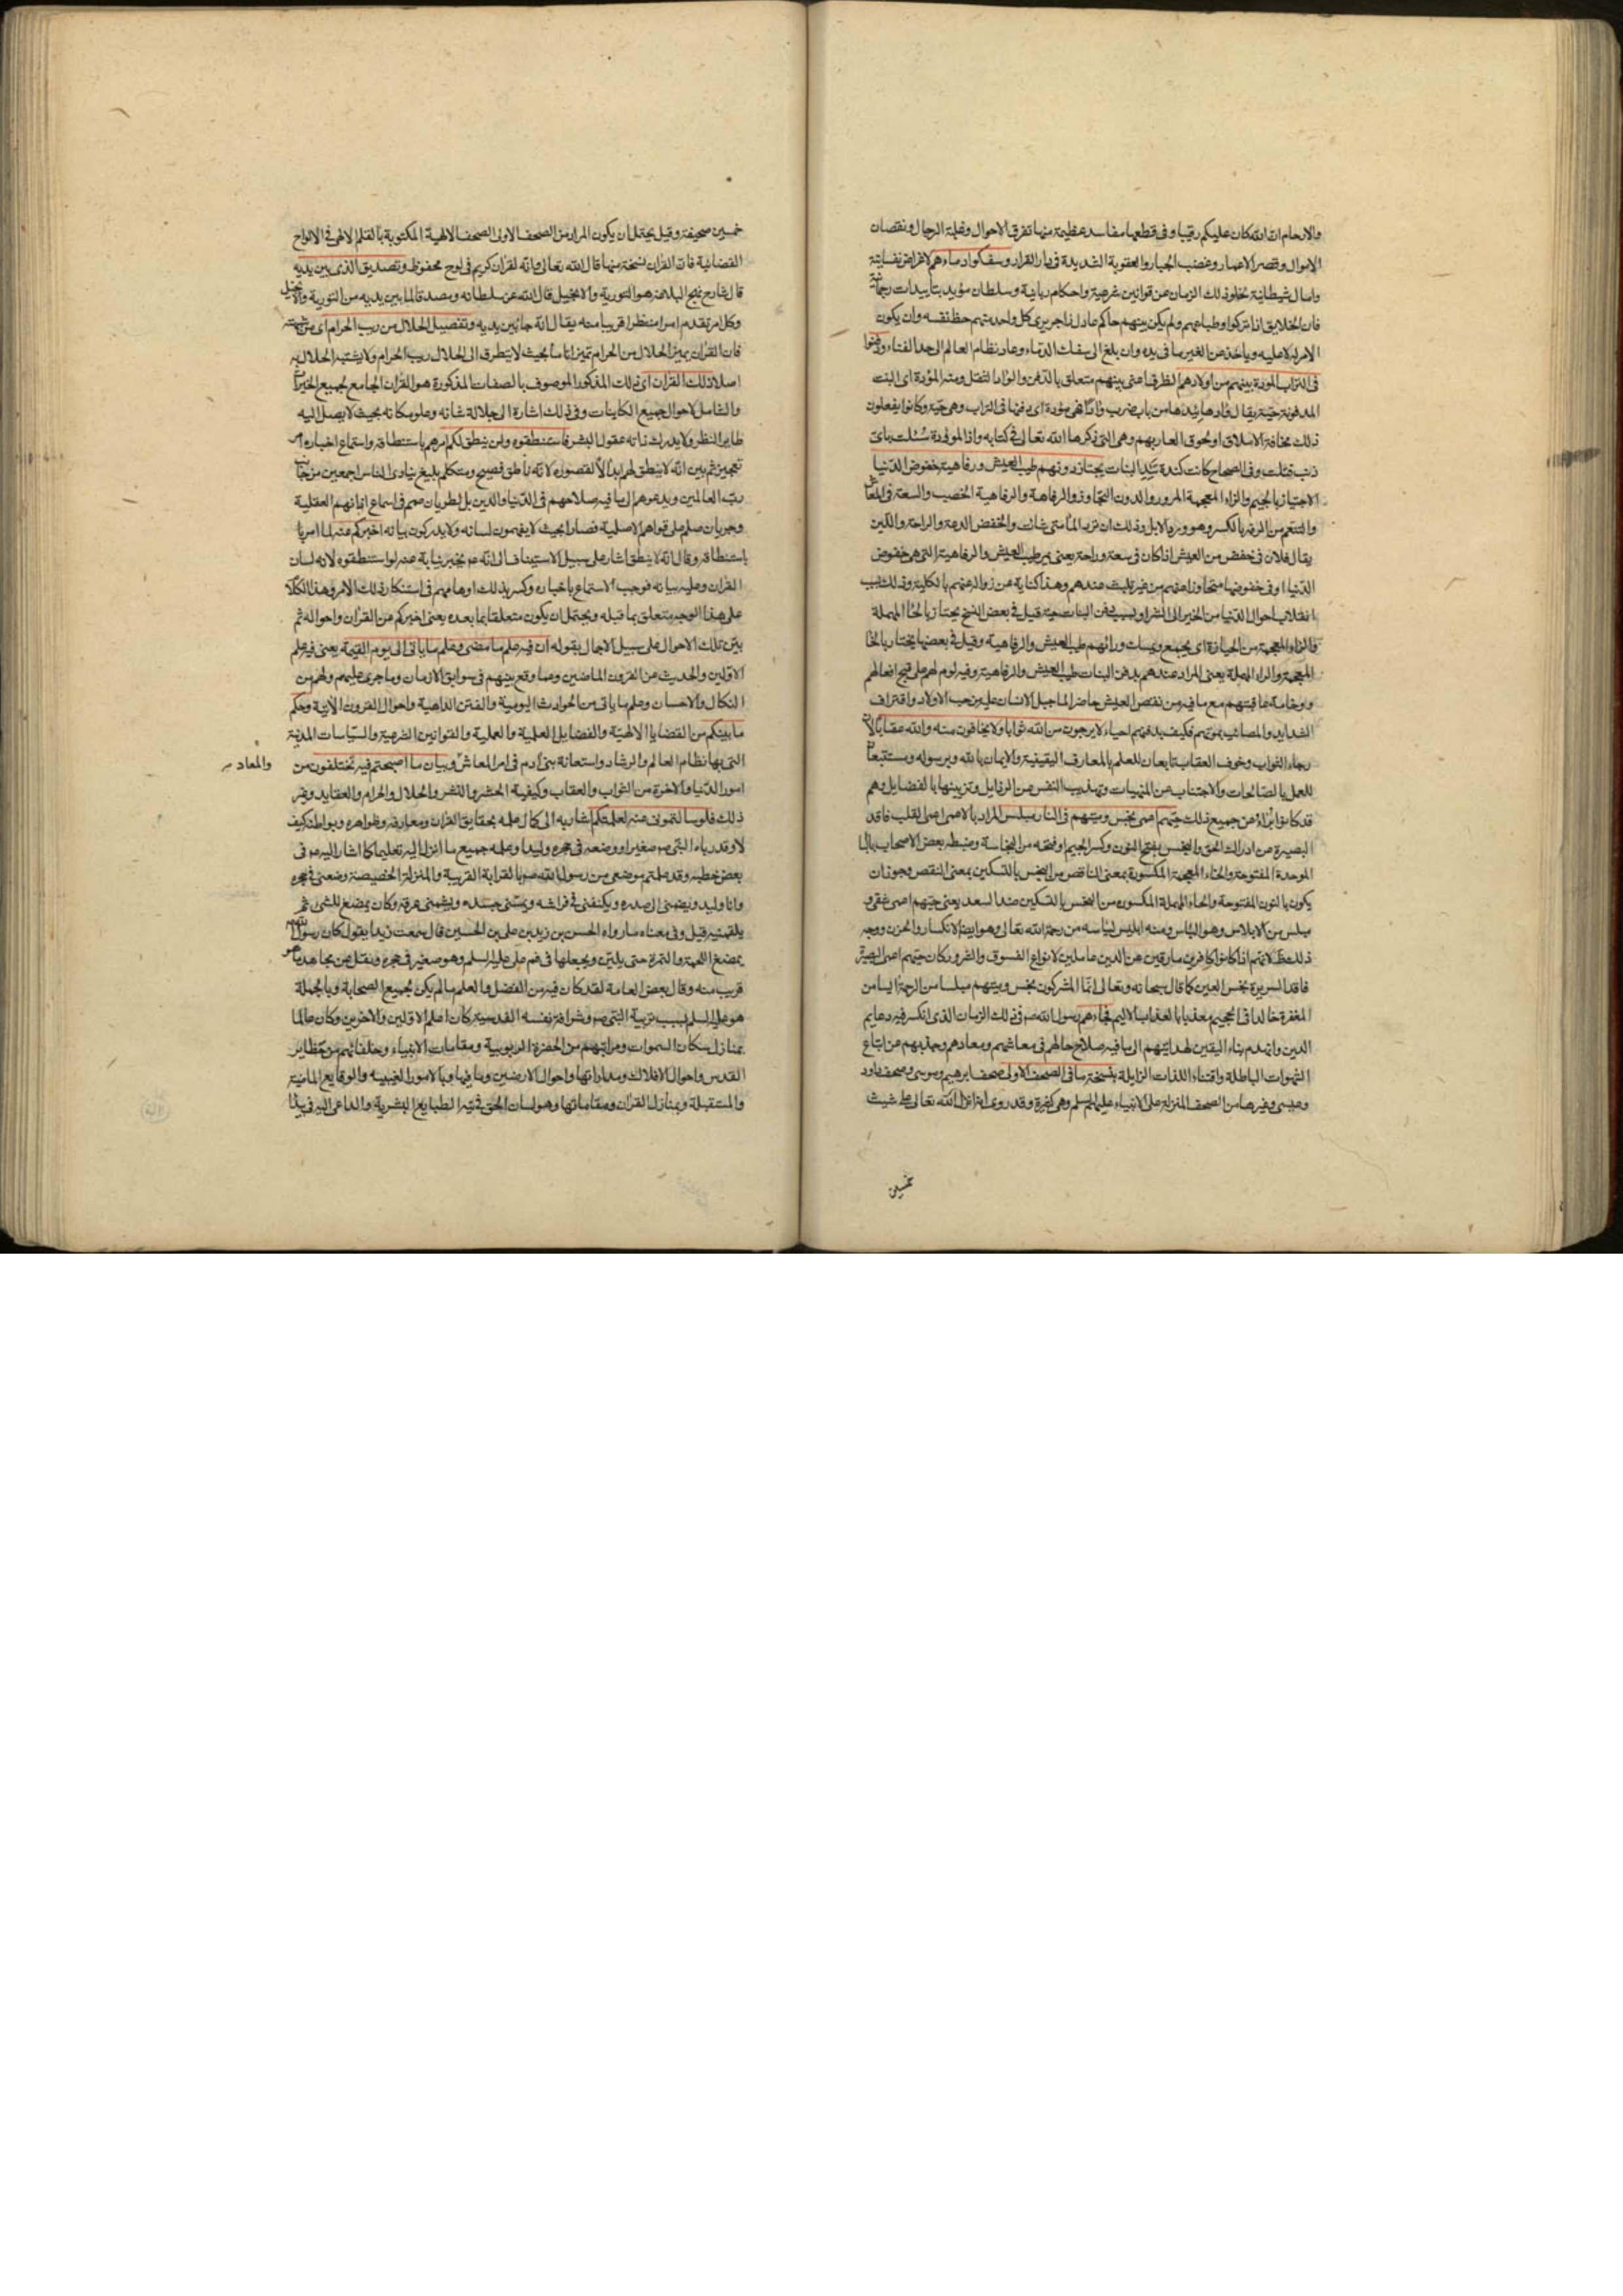 والارحام ان الله كان عليكم رقيبا وفى قطعها مفاسد عظيمة منها تفرق الاحوال وقلة الرجال ونقصان
الاموال وقصر الاعمار وغضب الجبار والعقوبة الشديدة فى دار القرار وسفكوا دماءهم لاغراض نفسانية
وامال شيطانية لخلو ذلك الزمان عن قوانين شرعية واحكام ربانية وسلطان مؤيد بتأييدات رحمانية
فان الخلايق اذا تركوا وطباعهم ولم يكن بينهم حاكم عادل زاجر يرى كل واحد منهم حظ نفسه وان يكون
الامر له لا عليه وياخذ من الغير ما فى يده وان بلغ الى سفك الدماء وعاد نظام العالم الى حد الفناء ودفنوا
فى التراب الموؤدة بينهم من اولادهم الظرف اعنى بينهم متعلق بالدفن والوأد الثقل ومنه الموؤدة اى البنت
المدفونة حية يقال وأدها يئدها من باب ضرب وأدا فهى موؤدة اى دفنها فى التراب وهى حية وكانوا يفعلون
ذلك مخافة الاملاق او لحوق العار بهم وهى التى ذكرها الله تعالى فى كتابه واذا الموؤدة سئلت باى
ذنب قتلت وفى الصحاح كانت كندة تئد البنات يجتاز دونهم طيب العيش ورفاهية خفوض الدنيا
الاجتياز بالجيم والزاء المعجمة المرور والدون التجاوز والرفاهة والرفاهية الخصب والسعة فى المعاش
والتنعم من الرفه بالكسر وهو ورود الابل وذلك ان ترد الماء متى شاءت والخفض الدعة والراحة واللين
يقال فلان فى خفض من العيش اذا كان فى سعة وراحة يعنى يمر طيب العيش والرفاهية التى هى خفوض
الدنيا او فى خفوضها متجاوزا عنهم من غير تلبث عندهم وهذا كناية عن زوالها عنهم بالكلية وذلك بسبب
انقلاب احوال الدنيا من الخير الى الشر او بسبب دفن البنات حية قيل فى بعض النسخ يحتاز بالحاء المهملة
والزاء المعجمة من الحيازة اى يجمع ويمسك وراءهم طيب العيش والرفاهية وقيل فى بعضها يختار بالخاء
المعجمة والراء المهملة يعنى المراد عندهم بدفن البنات طيب العيش والرفاهية وفيه لوم لهم على قبح افعالهم
ووخامة عاقبتهم مع ما فيه من نقص العيش حاضرا لما جبل الانسان عليه من حب الاولاد واقتراف
الشدايد والمصائب بموتهم فكيف بدفنهم احياء لا يرجون من الله ثوابا ولا يخافون منه والله عقابا لان
رجاء الثواب وخوف العقاب تابعان للعلم بالمعارف اليقينية والايمان بالله وبرسوله ومستتبعان
للعمل بالصالحات والاجتناب عن المنهيات وتهذيب النفس من الرذايل وتزيينها بالفضايل وهم
قد كانوا براء من جميع ذلك حيهم اعمى نجس وميتهم فى النار مبلس المراد بالاعمى اعمى القلب فاقد
البصيرة عن ادراك الحق والنجس بفتح النون وكسر الجيم او فتحه من النجاسة وضبطه بعض الاصحاب بالباء
الموحدة المفتوحة والخاء المعجمة المكسورة بمعنى الناقص من البخس بالتسكين بمعنى النقص وجوز ان
يكون بالنون المفتوحة والحاء المهملة المكسورة من النحس بالتسكين ضد السعد يعنى حيهم اعمى شقى و
مبلس من الابلاس وهو الياس ومنه ابليس لياسه من رحمة الله تعالى وهو ايضا الانكسار والحزن ووجه
ذلك ظ لانهم اذا كانوا كافرين مارقين عن الدين عاملين لانواع الفسوق والشرور كان حيهم اعمى البصيرة
فاقد السريرة نجس العين كما قال سبحانه وتعالى انما المشركون نجس وميتهم مبلسا من الرحمة ايسا من
المغفرة خالدا فى الجحيم معذبا بالعذاب الاليم فجاءهم رسول الله ص فى ذلك الزمان الذى انكسر فيه دعايم
الدين وانهدم بناء اليقين لهدايتهم الى ما فيه صلاح حالهم فى معاشهم ومعادهم وجذبهم عن اتباع
الشهوات الباطلة واقتناء اللذات الزايلة بنسخة ما فى الصحف الاولى صحف ابرهيم وموسى وصحف داود
وعيسى وغيرها من الصحف المنزلة على الانبياء عليهم السلم وهى كثيرة وقد روى انه انزل الله تعالى على شيث
خمسين
خمسين صحيفة وقيل يحتمل ان يكون المراد من الصحف الاولى الصحف الالهية المكتوبة بالقلم الالهى فى الالواح
القضائية فان القران نسخة منها قال الله تعالى وانه لقران كريم فى لوح محفوظ وتصديق الذى بين يديه
قال شارح نهج البلاغة هو التورية والانجيل قال الله عز سلطانه ومصدقا لما بين يديه من التورية والانجيل
وكل امر تقدم امرا منتظرا قريبا منه يقال انه جاء بين يديه وتفصيل الحلال من ريب الحرام اى من شبهته
فان القران يميز الحلال من الحرام تميزا تاما بحيث لا يتطرق الى الحلال ريب الحرام ولا يشتبه الحلال به
اصلا ذلك القران اى ذلك المذكور الموصوف بالصفات المذكورة هو القران الجامع لجميع الخيرات
والشامل لاحوال جميع الكاينات وفى ذلك اشارة الى جلالة شانه وعلو مكانه بحيث لا يصل اليه
طاير النظر ولا يدرك ذاته عقول البشر فاستنطقوه ولن ينطق لكم امرهم باستنطاقه واستماع اخباره امر
تعجيز ثم بين انه لا ينطق لهم ابدا لا لقصوره لانه ناطق فصيح ومتكلم بليغ ينادى الناس اجمعين من جانب
رب العالمين ويدعوهم الى ما فيه صلاحهم فى الدنيا والدين بل لطريان صمم فى اسماع اذانهم العقلية
وجريان صلم على قواهم الاصلية فصاروا بحيث لا يفهمون لسانه ولا يدركون بيانه اخبركم عنه لما امر با
باستنطاقه وقال انه لا ينطق اشار على سبيل الاستيناف الى انه ع مخبر نيابة عنه لو استنطقوه لانه لسان
القران وعليه بيانه فوجب الاستماع باخباره وكسر بذلك اوهامهم فى استنكار ذلك الامر وهذا الكلام
على هذا الوجه متعلق بما قبله ويحتمل ان يكون متعلقا بما بعده يعنى اخبركم عن القران واحواله ثم
بين تلك الاحوال على سبيل الاجمال بقوله ان فيه علم ما مضى وعلم ما ياتى الى يوم القيمة يعنى فيه علم
الاولين والحديث عن القرون الماضين وما وقع بينهم فى سوابق الازمان وما جرى عليهم ولهم من
النكال والاحسان وعلم ما ياتى من الحوادث اليومية والفتن الداهية واحوال القرون الاتية وحكم
ما بينكم من القضايا الالهية والفضايل العلمية والعملية والقوانين الشرعية والسياسات المدنية
التى بها نظام العالم والرشاد واستعانة بنى ادم فى امر المعاش وبيان ما اصبحتم فيه تختلفون من
والمعاد
امور الدنيا والاخرة من الثواب والعقاب وكيفية الحشر والنشر والحلال والحرام والعقايد وغير
ذلك فلو سالتمونى عنه لعلمتكم اشار به الى كمال علمه بحقايق القران ومعارفه وظواهره وبواطنه كيف
لا وقد رباه النبى ص صغيرا ووضعه فى حجره وليدا وعلمه جميع ما انزل اليه تعليما كما اشار اليه ع فى
بعض خطبه وقد علمتم موضعى من رسول الله ص بالقرابة القريبة والمنزلة الخصيصة وضعنى فى حجره
وانا وليد ويضمنى الى صدره ويكنفنى فى فراشه ويمسنى جسده ويشمنى عرفه وكان يمضغ الشئ ثم
يلقمنيه قيل وفى معناه ما رواه الحسن بن زيد بن على بن الحسين قال سمعت زيدا يقول كان رسول الله ص
يمضغ اللحمة والتمرة حتى يلين ويجعلها فى فم على عليه السلم وهو صغير فى حجره ونقل عن مجاهد ما هو
قريب منه وقال بعض العامة لقد كان فيه من الفضل والعلم ما لم يكن لجميع الصحابة وبالجملة
هو عليه السلم بسبب تربية النبى ص وشرافة نفسه القدسية كان اعلم الاولين والاخرين وكان عالما
بمنازل سكان السموات ومراتبهم من الحضرة الربوبية ومقامات الانبياء وخلفائهم من حظاير
القدس واحوال الافلاك ومداراتها واحوال الارضين وما فيها وبالامور الغيبيه والوقايع الماضية
والمستقبلة وبمنازل القران ومقاماتها وهو لسان الحق فى تيه الطبايع البشرية والداعى اليه فى بيداء